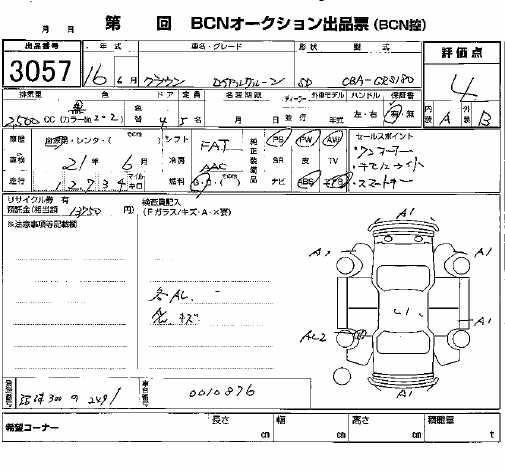 月 日 第 回 BCNオークション出品票(BCN控)
出品番号 年式 車名・グレード 形状 型式 評価点
3057 16年 6月 クラウン SD CBA-GRS180 4
排気量 色 色替 ドア 定員 名変期限 ディーラー 外車モデル ハンドル 保証書 内装 A 外装 B
2500 CC (カラーNo. 2-2) 黒 4 5名 月 日 並行 年式 左・右 有・無
履歴 自家用・レンタ・( ) シフト FAT 純正装備品 PS PW AW セールスポイント
車検 21年 6月 冷房 AAC SR 皮 TV ・ワンオーナー
走行 1 2,7 3 4 マイル キロ 燃料 G・D・( ) ナビ ABS
・スマートキー
リサイクル券 有
預託金(相当額 円)
検査員記入
(Fガラス/キズ・A・×要)
※注意事項等記載欄
A1
A1
各AL.
キズ
A1
AL2
A1
A1
登録番号 300 の 2491 車台番号 0010876
希望コーナー 長さ cm 幅 cm 高さ cm 積載量 t